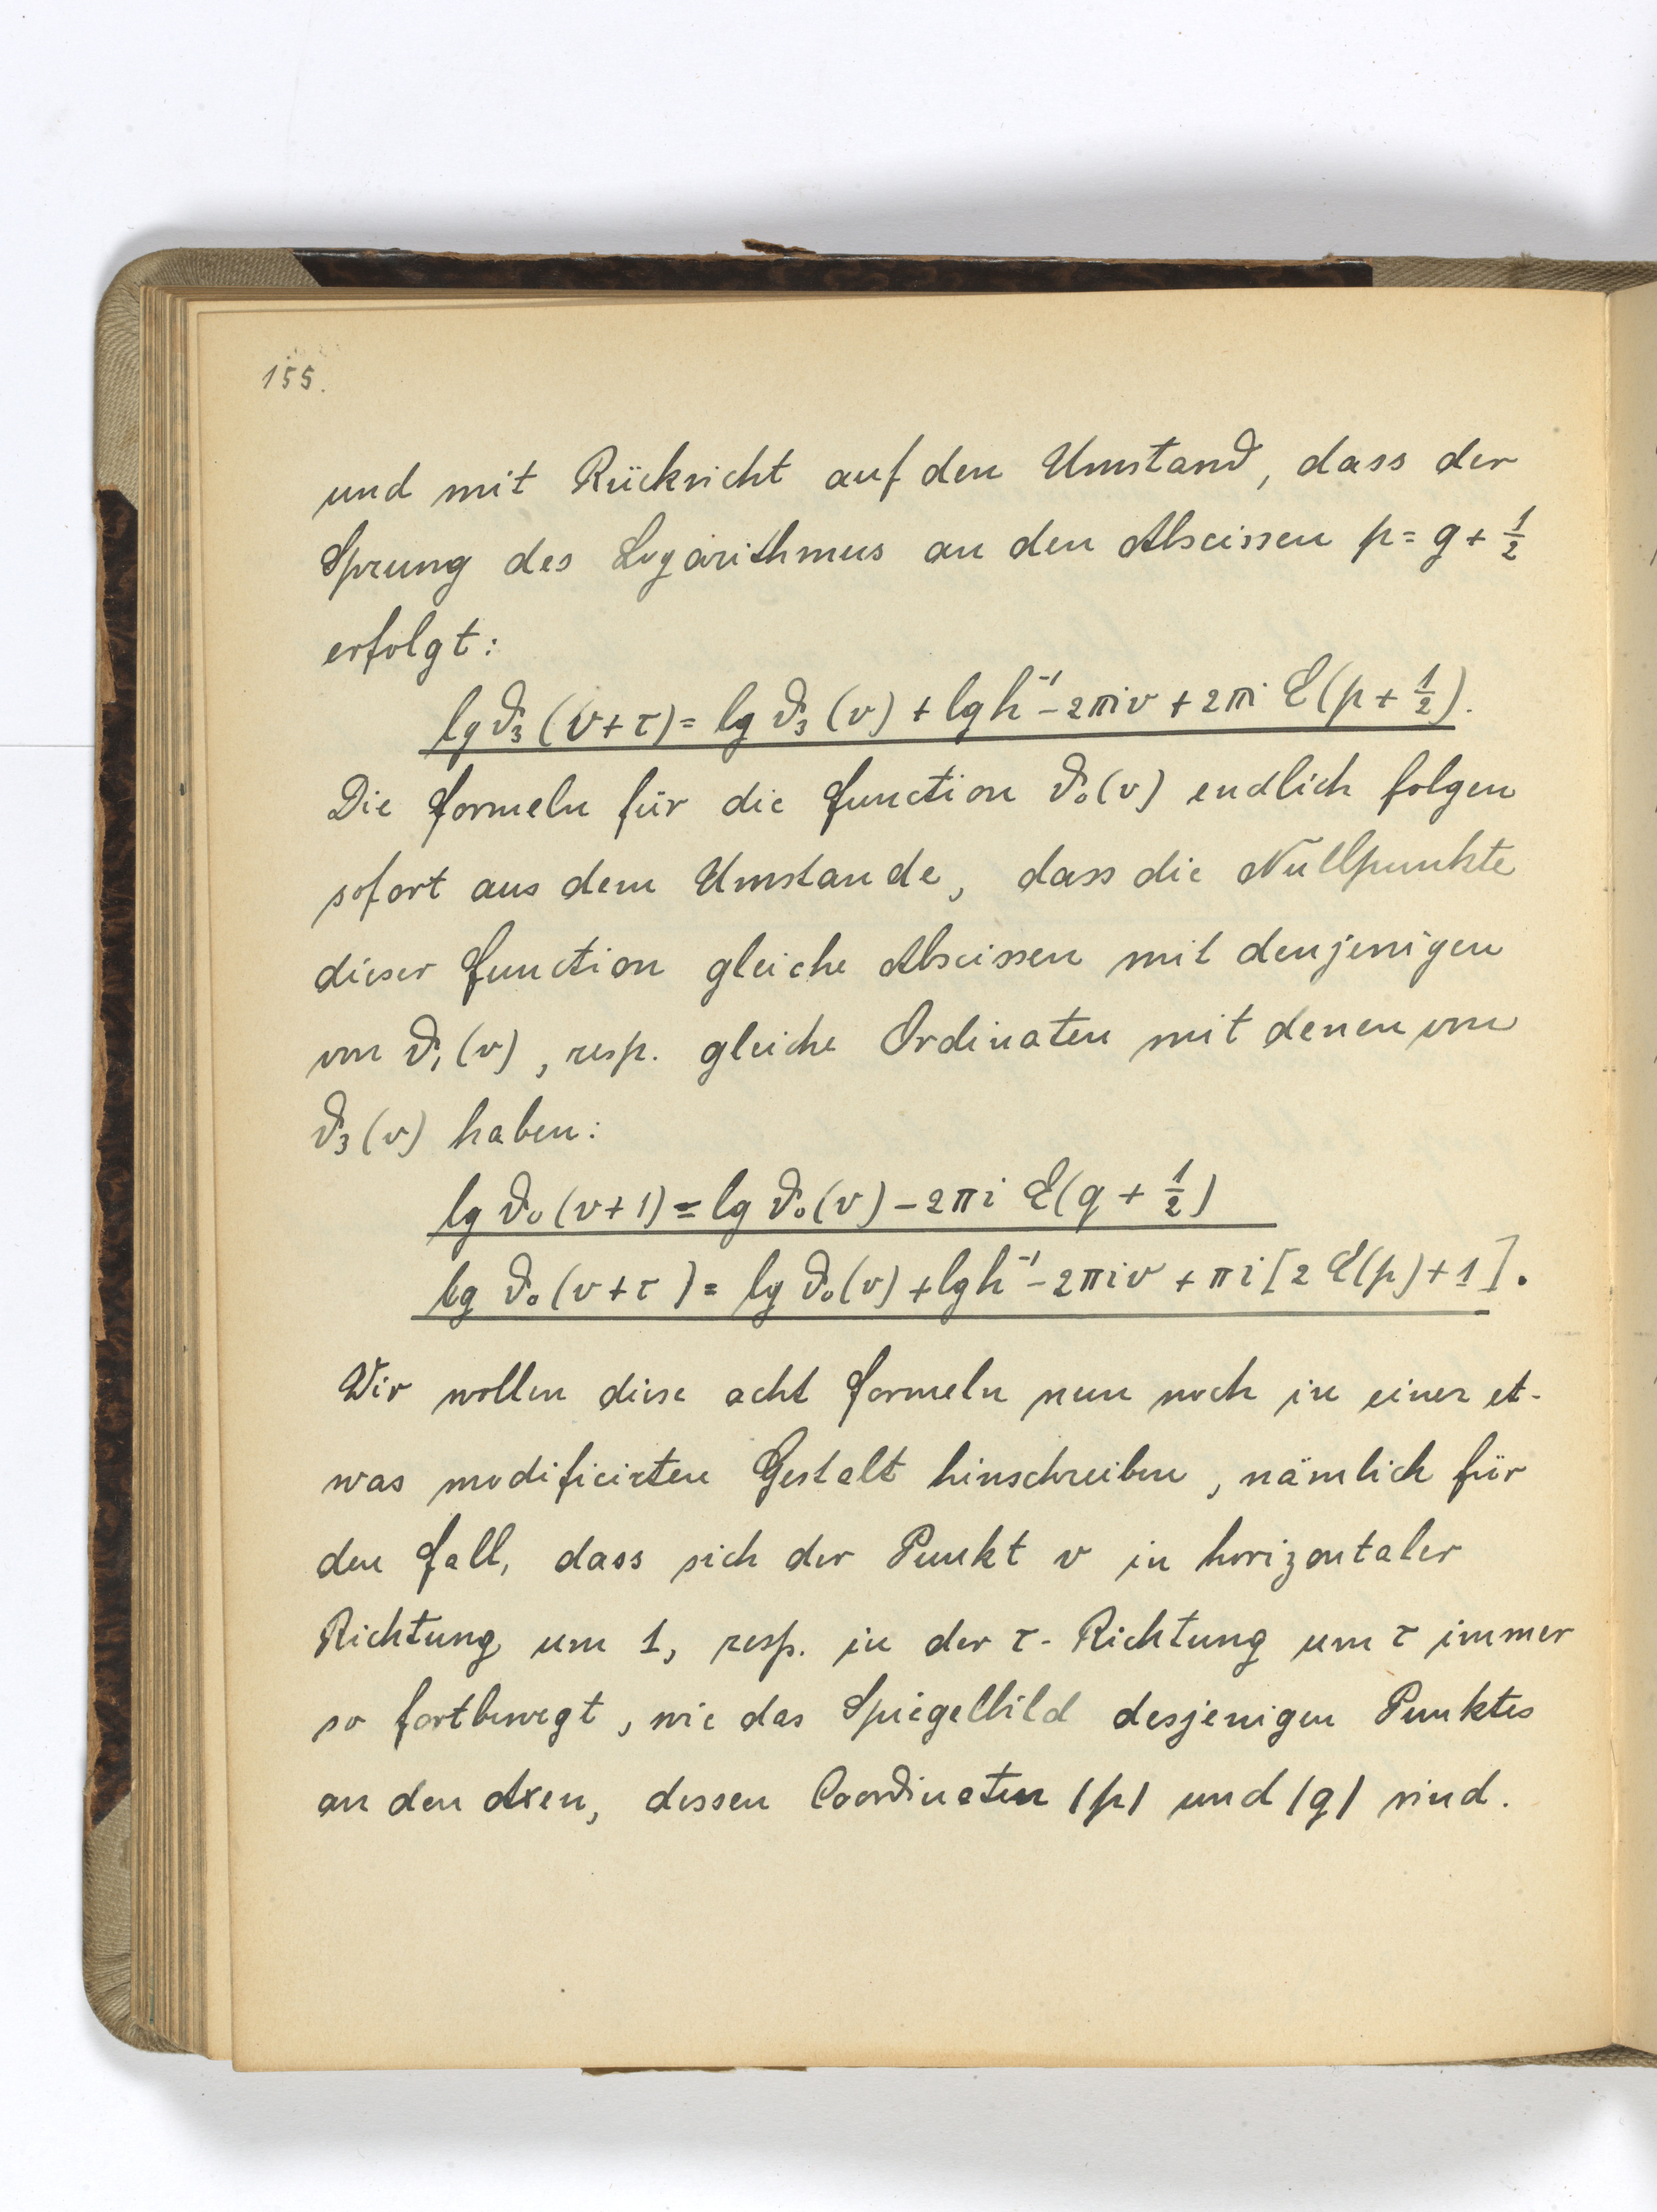 155.
und mit Rücksicht auf den Umstand, dass der
Sprung des Logarithmus an den Abscissen p = g + 1/2
erfolgt:
lg ϑ₃(v+τ) = lg ϑ₃(v) + lg h⁻¹ − 2πiv + 2πi E(p + 1/2).
Die Formeln für die Function ϑ₀(v) endlich folgen
sofort aus dem Umstande, dass die Nullpunkte
dieser Function gleiche Abscissen mit denjenigen
von ϑ₁(v), resp. gleiche Ordinaten mit denen von
ϑ₃(v) haben:
lg ϑ₀(v+1) = lg ϑ₀(v) − 2πi E(q + 1/2)
lg ϑ₀(v+τ) = lg ϑ₀(v) + lg h⁻¹ − 2πiv + πi[2 E(p) + 1].
Wir wollen diese acht Formeln nun noch in einer et-
was modificirten Gestalt hinschreiben, nämlich für
den Fall, dass sich der Punkt v in horizontaler
Richtung um 1, resp. in der τ-Richtung um τ immer
so fortbewegt, wie das Spiegelbild desjenigen Punktes
an den Axen, dessen Coordinaten |p| und |q| sind.